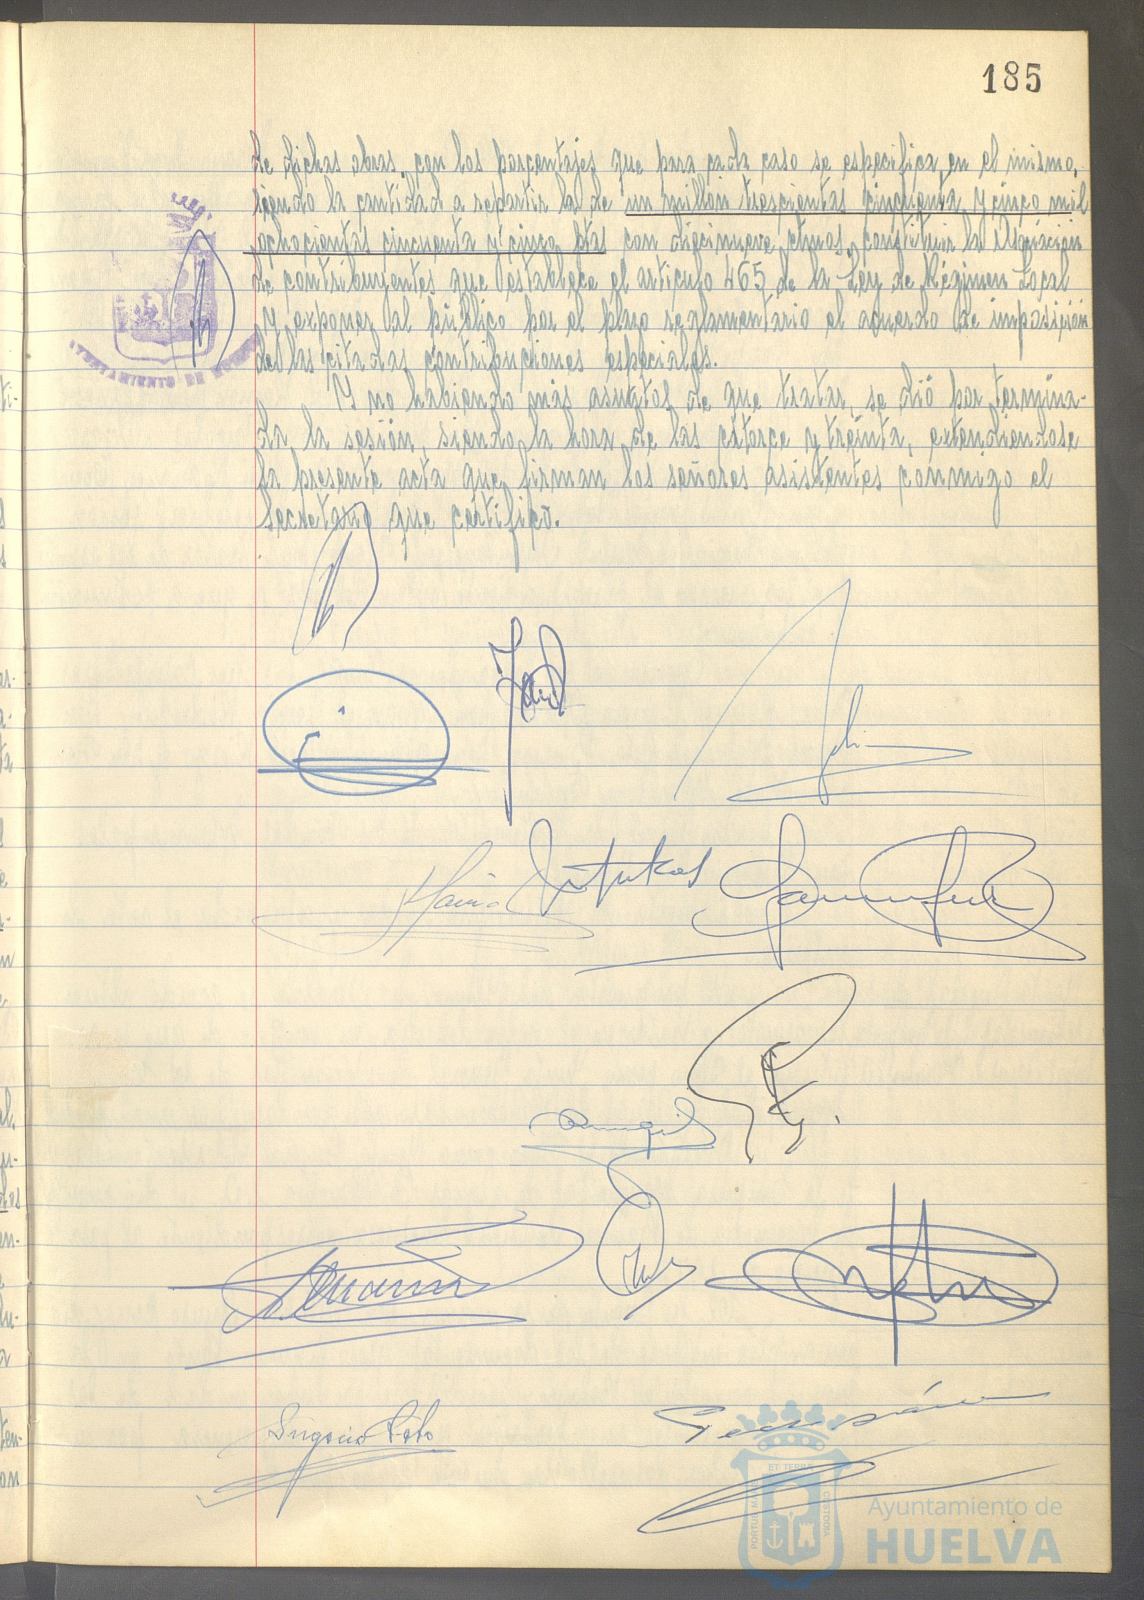 185
de dichas obras, con los porcentajes que para cada caso se especifica en el mismo,
siendo la cantidad a repartir la de un millón trescientas cincuenta y cinco mil
ochocientas cincuenta y cinco ptas con diecinueve ctmos, constituir la Asociación
de contribuyentes que establece el artículo 465 de la Ley de Régimen Local
y exponer al público por el plazo reglamentario el acuerdo de imposición
de las citadas contribuciones especiales.
Y no habiendo más asuntos de que tratar, se dió por termina-
da la sesión, siendo la hora de las catorce y treinta, extendiendose
la presente acta que firman los señores asistentes conmigo el
Secretario que certifico.
AYUNTAMIENTO DE HUELVA
PORTUS MARIS
ET TERRÆ
CUSTODIA
Ayuntamiento de
HUELVA